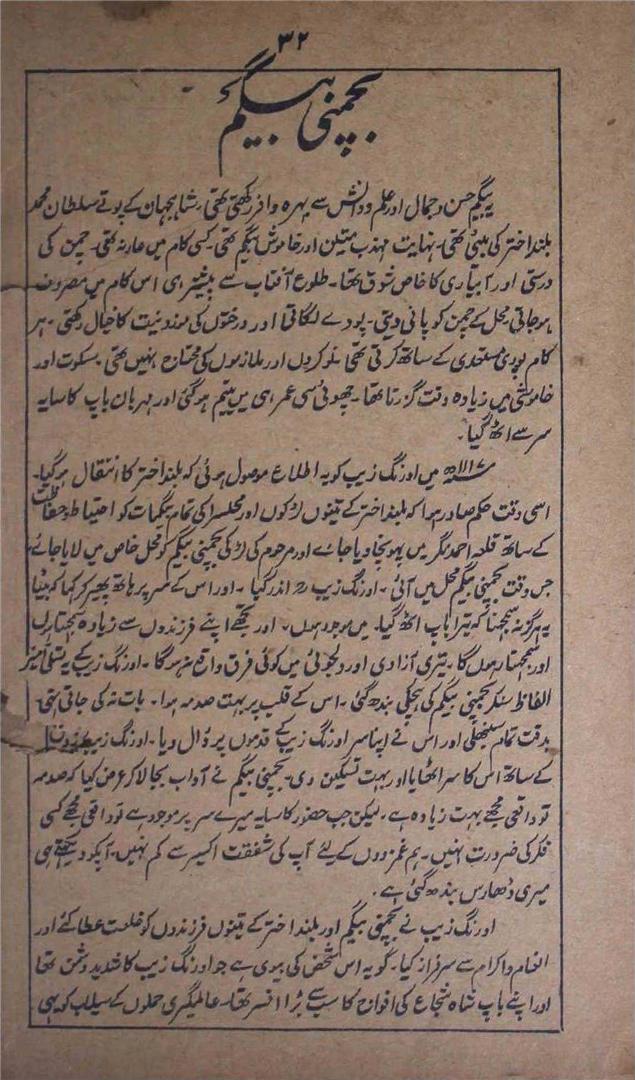 ۳۲
بجمنی بیگم
یہ بیگم حسن و جمال اور علم و دانش سے بہرہ وافر رکھتی تھی۔ شاہجہان کے پوتے سلطان محمد
بلند اختر کی بیٹی تھی۔ نہایت مہذب متین اور خاموش بیگم تھی۔ کسی کام میں عار نہ تھی۔ چمن کی
درستی اور آبیاری کا خاص شوق تھا۔ طلوع آفتاب سے پیشتر ہی اس کام میں مصروف
ہو جاتی محل کے چمن کو پانی دیتی۔ پودے لگاتی اور درختوں کی موزونیت کا خیال رکھتی۔ ہر
کام پوری مستعدی کے ساتھ کرتی تھی نوکروں اور ملازموں کی محتاج نہیں تھی۔ سکوت اور
خاموشی میں زیادہ وقت گزرتا تھا۔ چھوٹی سی عمر ہی میں یتیم ہو گئی اور مہربان باپ کا سایہ
سر سے اٹھ گیا۔
۱۱۱۷ھ میں اورنگ زیب کو یہ اطلاع موصول ہوئی کہ بلند اختر کا انتقال ہو گیا۔
اسی وقت حکم صادر ہوا کہ بلند اختر کے تینوں لڑکوں اور محلسرا کی تمام بیگمات کو احتیاط و حفاظت
کے ساتھ قلعہ احمد نگر میں پہونچا دیا جاے اور مرحوم کی لڑکی بجمنی بیگم کو محل خاص میں لایا جائے،
جس وقت بجمنی بیگم محل میں آئی۔ اورنگ زیب اندر گیا۔ اور اس کے سر پر ہاتھ پھیر کر کہا کہ بیٹا
یہ ہرگز نہ سمجھنا کہ تیرا باپ اٹھ گیا۔ میں موجود ہوں۔ اور تجھے اپنے فرزندوں سے زیادہ سمجھتا رہا
اور سمجھتا رہوں گا۔ تیری آزادی اور دلجوئی میں کوئی فرق واقع نہ ہوگا۔ اورنگ زیب کے یہ تسلی آمیز
الفاظ سنکر بجمنی بیگم کی ہچکی بندھ گئی۔ اس کے قلب پر بہت صدمہ ہوا۔ بات نہ کی جاتی تھی۔
بدقت تمام سنبھلی اور اس نے اپنا سر اورنگ زیب کے قدموں پر ڈال دیا۔ اورنگ زیب نے
کے ساتھ اس کا سر اٹھایا اور بہت تسکین دی۔ بجمنی بیگم نے آداب بجا لا کر عرض کیا کہ صدمہ
تو واقعی مجھے بہت زیادہ ہے۔ لیکن جب حضور کا سایہ میرے سر پر موجود ہے تو واقعی مجھے کسی
فکر کی ضرورت نہیں۔ ہم غمزدوں کے لئے آپ کی شفقت اکسیر سے کم نہیں۔ آپکو دیکھتے ہی
میری ڈھارس بندھ گئی ہے۔
اورنگ زیب نے بجمنی بیگم اور بلند اختر کے تینوں فرزندوں کو خلعت عطا کئے اور
انعام و اکرام سے سرفراز کیا۔ گو یہ اس شخص کی بیوی ہے جو اورنگ زیب کا شدید دشمن تھا
اور اپنے باپ شاہ شجاع کی افواج کا سب سے بڑا افسر تھا۔ عالمگیری حملوں کے سیلاب کو یہی